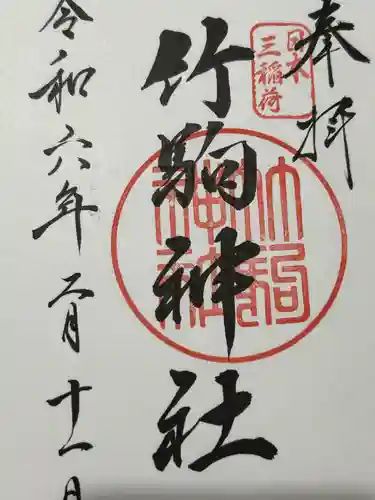 奉拝
日本
三稲荷
竹駒神社
竹駒
神社
令和六年二月十一日